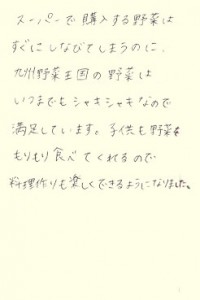 スーパーで購入する野菜は
すぐにしなびてしまうのに、
九州野菜王国の野菜は
いつまでもシャキシャキなので
満足しています。子供も野菜を
もりもり食べてくれるので
料理作りも楽しくできるようになりました。